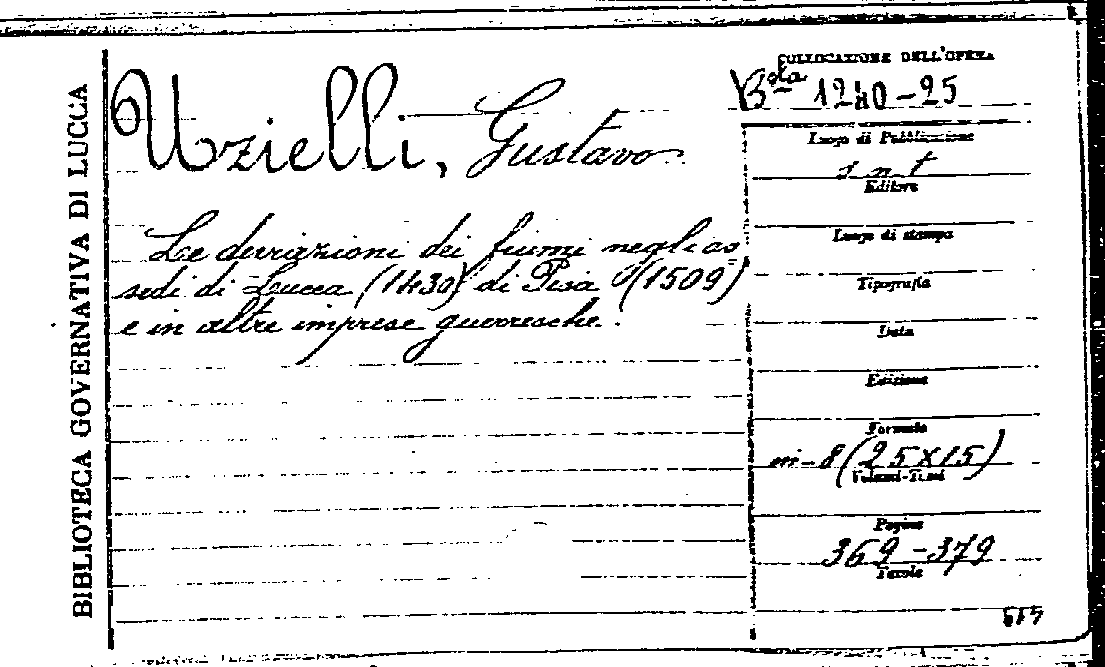 BIBLIOTECA GOVERNATIVA DI LUCCA
Uzielli, Gustavo
Le deviazioni dei fiumi negli as-
sedi di Lucca (1430) di Pisa (1509)
e in altre imprese guerresche.
COLLOCAZIONE DELL'OPERA
Bta 1240-25
Luogo di Pubblicazione
s n t
Editore
Luogo di stampa
Tipografia
Data
Edizione
Formato
in-8 (25x15)
Volumi-Tomi
Pagine
369-379
Tavole